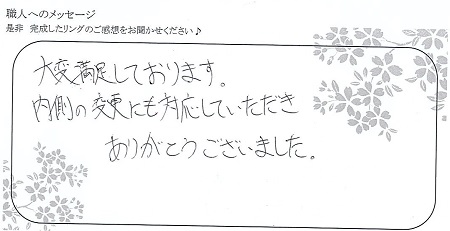 職人へのメッセージ
是非 完成したリングのご感想をお聞かせください♪
大変満足しております。
内側の変更にも対応していただき
ありがとうございました。